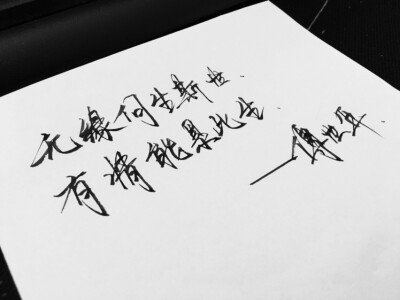 无緣何生斯世
有情能累此生
——傅世年